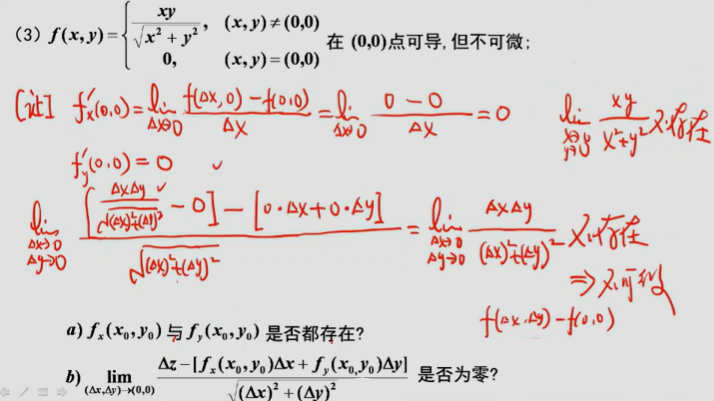 (3) f(x,y)={ xy/√(x²+y²), (x,y)≠(0,0)
0, (x,y)=(0,0) 在 (0,0)点可导,但不可微;
[证] f'x(0,0)=lim Δx→0 (f(Δx,0)-f(0,0))/Δx = lim Δx→0 (0-0)/Δx = 0
lim x→0 y→0 xy/(x²+y²) 不存在
f'y(0,0)=0 ✓
lim Δx→0 Δy→0 ([ΔxΔy/√((Δx)²+(Δy)²) - 0] - [0·Δx+0·Δy])/√((Δx)²+(Δy)²) = lim Δx→0 Δy→0 ΔxΔy/((Δx)²+(Δy)²) 不存在
⇒ 不可微
f(Δx,Δy)-f(0,0)
a) fx(x₀,y₀) 与 fy(x₀,y₀) 是否都存在?
b) lim (Δx,Δy)→(0,0) (Δz-[fx(x₀,y₀)Δx+fy(x₀,y₀)Δy])/√((Δx)²+(Δy)²) 是否为零?